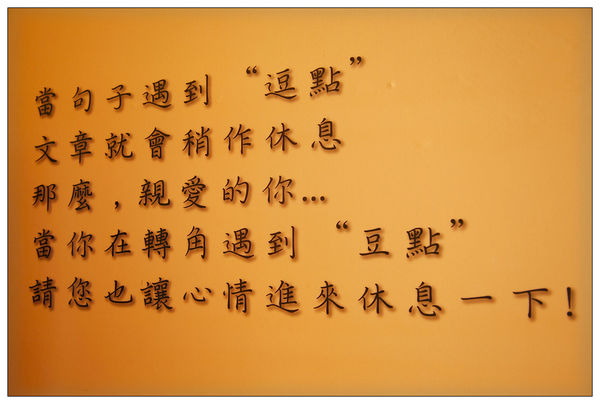 當句子遇到“逗點”
文章就會稍作休息
那麼，親愛的你...
當你在轉角遇到“豆點”
請您也讓心情進來休息一下！